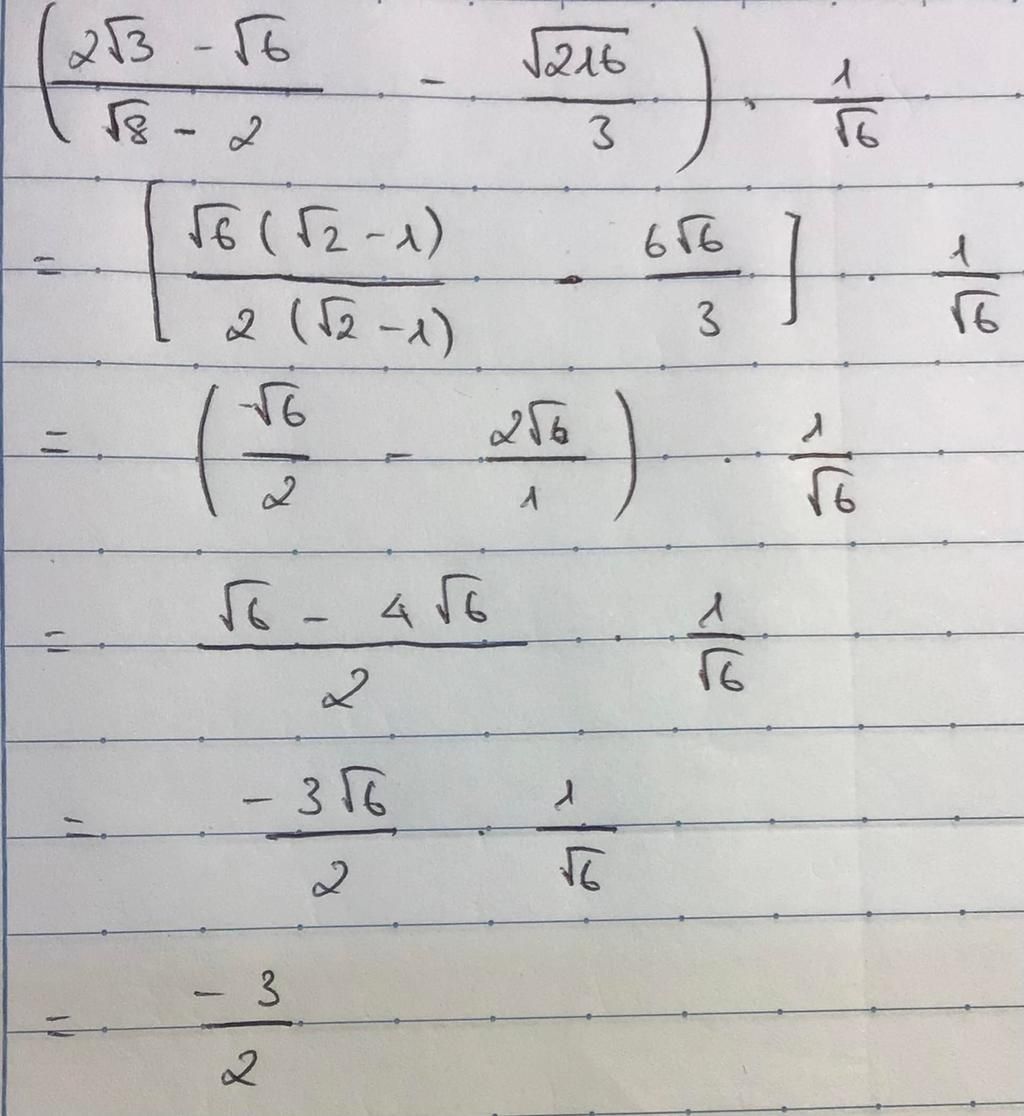 ( (2√3 - √6)/(√8 - 2) - √216/3 ) . 1/√6
= [ √6 (√2 - 1)/2 (√2 - 1) - 6√6/3 ] . 1/√6
= ( √6/2 - 2√6/1 ) . 1/√6
= (√6 - 4√6)/2 . 1/√6
= -3√6/2 . 1/√6
= -3/2